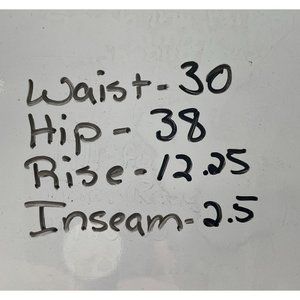 Waist-30
Hip - 38
Rise-12.25
Inseam-2.5